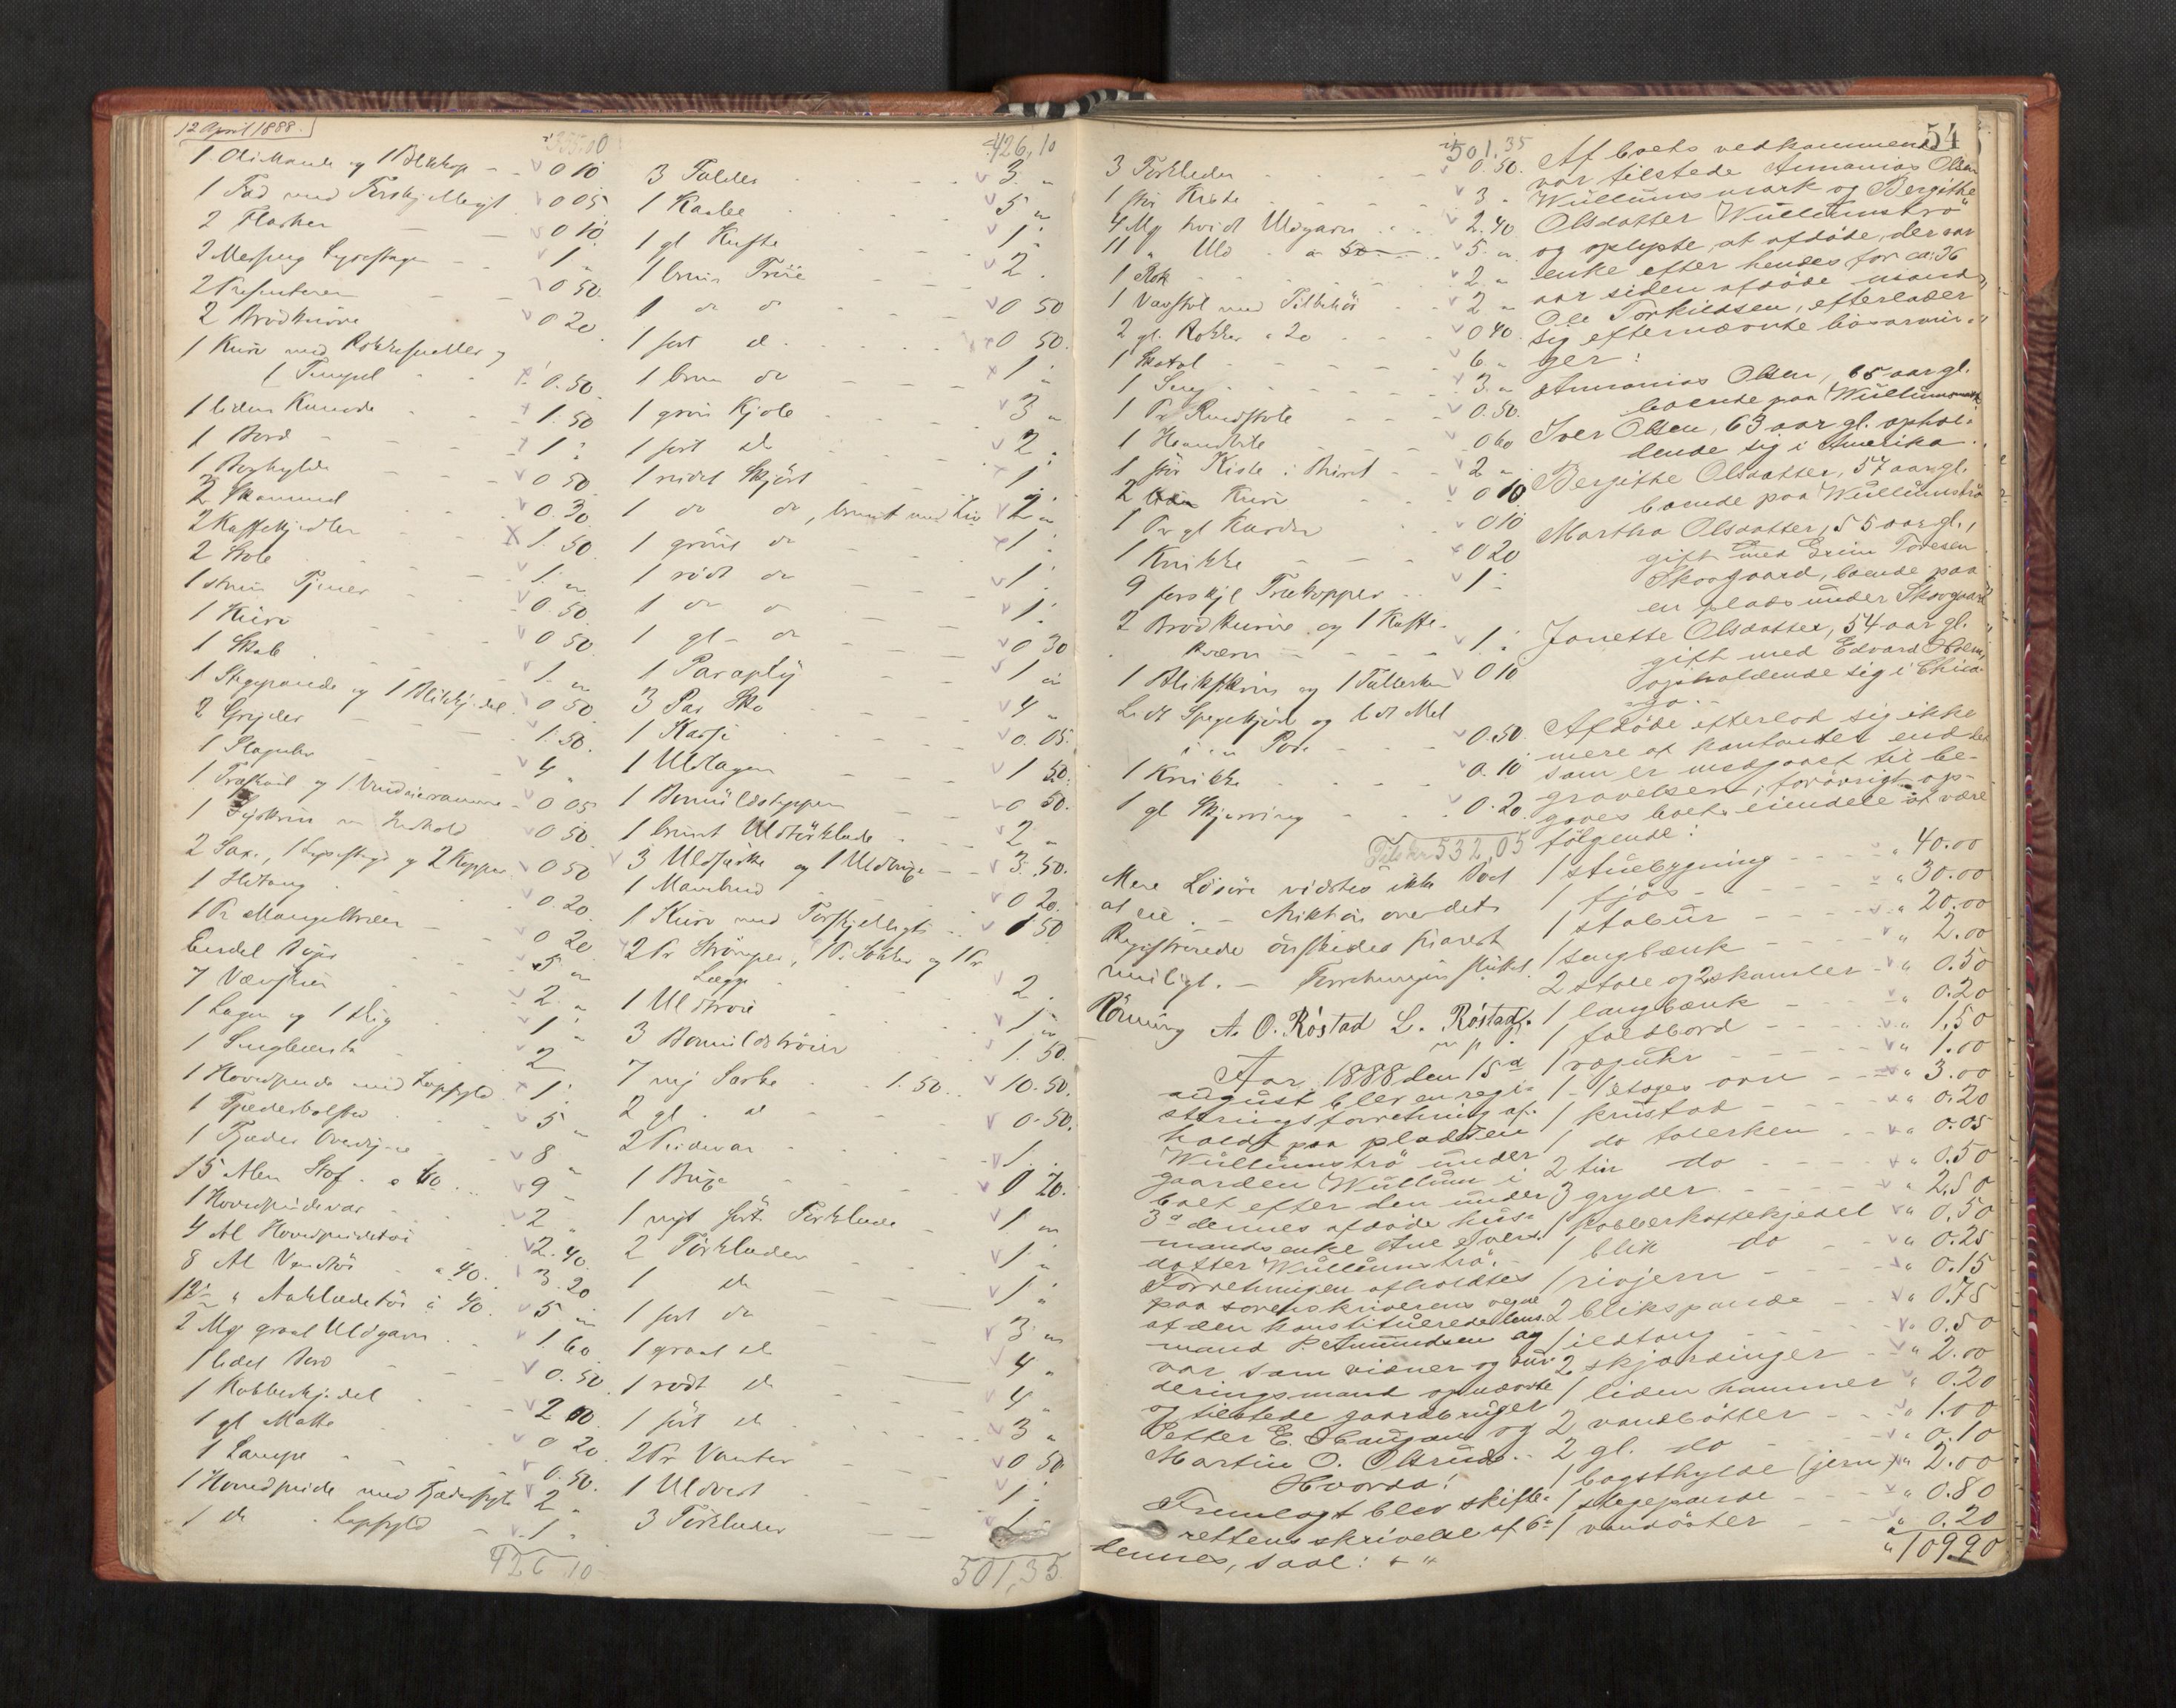 12 April 1888.
355.00
1 og 1 Blikkop - - 0 10
1 Fad med Forskjelligt 0 05
2 Flasker - - 0 10
2 Messing Lysestager - 1 "
2 Presenterer - - 0 50.
2 Brødkurve 0 20
1 Kurv med Rokkesneller og
1 - 0.50.
1 liden Kumode - 1.50
1 Bord - - 1 "
1 Boghylde 0 50
2 Skammel 0.30
2 Kaffekjedler 1.50
2 Stole 1. "
1 Tiner 0.50
1 Kurv 0 50
1 Skab 1. "
1 Stegepande og 1 Blikkjedel 0 50
2 Gryder 1.50.
1 Slaguhr 4 "
1 og 1 Vinduesramme - 0 05
1 Syskrin m Indhold 0 50
2 Saxe, 1 Lysestage og 2 Kopper 0 50
1 Ildtang 0.20.
1 Pr 0 20
Endel 5 "
7 2. "
1 Lagen og 1 1 "
1 Sengbenk 2
1 Hovedpude med Lapfyld 1.
1 Fjederbolster 5 "
1 Fjeder Overdyne 8 "
15 Alen Stof a 60 9 "
1 Hovedpudevar 2 "
4 Al Hovedpudetøi 2.40
8 Al a 40. 3.20
12½ " Aaklædetøi a 40. 5 "
2 Mg graat Uldgarn 1.60
1 lidet Bord 0.50
1 Kobberkjedel 2 00
1 gl Matte 0 20
1 Lampe 0.50.
1 Hovedpude med Fjederfyld 2 "
1 do " Lapfyld 1 "
426.10
426,10
3 Falder 3. "
1 Kaabe 5 "
1 gl Kufte 1 "
1 brun Trøie 2 "
1 do do 0 50
1 sort do 0 50.
1 brun do 1 "
1 grøn Kjole 3 "
1 sort do 2 "
1 Skjørt 1 "
1 do do, brunt med Liv 2 "
1 grønt do 1 "
1 rødt do 1 "
1 do do 1 "
1 gl - do 0 30
1 Paraply 1 "
3 Par Sko 4 "
1 Karfe 0.05.
1 Uldlagen 1 50.
1 Bomuldsteppe 0 50.
1 brunt Uldtørklæde 2 "
3 Uldskjørter og 1 Uldbuxe 3.50.
1 0 20.
1 Kurv med Forskjelligt 1 50
2 Pr Strømper, 1 Pr Sokker og 1 Pr
Lægge 2.
1 Uldtrøie 1 "
3 Bomuldstrøier 1.50.
7 nye Særke 1.50. 10.50.
2 gl. do 0.50.
2 Pudevar 1.
1 Buxe 0 20.
1 nyt sort Tørklæde 1 "
2 Tørklæder 1 "
1 do 1 "
1 sort do 3 "
1 graat do 4 "
1 rødt do 4 "
1 sort do 3 "
2 Pr Vanter 0 50
1 Uldvest 1 "
3 Tørklæder 1 "
501,35
501.35
3 Tørklæder 0.50.
1 stor Kiste 3 "
4 Mg hvidt Uldgarn 2.40
11 " Uld a 50 5. "
1 Rok 2 "
1 Vævstol med Tilbehør 2 "
2 gl. Rokker a 20 0 40
1 Skatol 6 "
1 Seng 3 "
1 Pr 0.50.
1 0 60
1 stor Kiste i Buret 2 "
2 Kurve 0 10
1 Pr gl Karder 0 10
1 Krukke 0 20
9 forskjl Trækopper 1 "
2 Brødkurve og 1 Kaffe-
kværn 1 "
1 Blikskrin og 1 Tallerken 0 10
Lidt Spegekjød og lidt Mel
i en Pose 0.50
1 Krukke 0.10
1 gl Skjæring 0.20
Tils kr 532,05
Mere Løsøre vidstes ikke Boet
at eie. - Auktion over det
Registrerede ønskedes snarest
muligt. - Forretningen sluttet.
Rönning A. O. Röstad L. Röstad
m p
Aar 1888 den 15de
august blev en regi-
steringsforretning af-
holdt paa pladsen
Wullumstrø under
gaarden Wullum i
boet efter den under
3de dennes afdøde hus-
mandsenke Ane Evens-
datter Wullumstrø.-
Forretningen afholdtes
paa sorenskriverens vegne
af den konstituerede lens-
mand P. Amundsen og
var som vidner og vur-
deringsmænd opnævnte
og tilstede gaardbruger
Petter E. Haugan og
Martin O. Olstrud.-
Hvorda!
Fremlagt blev skifte-
rettens skrivelse af 6te
dennes, saal: + "
54
Af boets vedkommende
var tilstede Annanias Olsen
Wullumsmark og Bergithe
Olsdatter Wullumstrø
og oplyste, at afdøde, der var
enke efter hendes for ca: 36
aar siden afdøde mand
Ole Torkildsen, efterlader
sig efternævnte livsarvin-
ger:
Annanias Olsen, 65 aar gl.
boende paa Wullumsmark
Iver Olsen, 63 aar gl. ophol-
dende sig i Amerika.
Bergithe Olsdatter, 57 aar gl.
boende paa Wullumstrø
Martha Olsdatter, 55 aar gl.,
gift med Grim Toresen
Skovgaard, boende paa
en plads under Skovgaard
Janette Olsdatter, 54 aar gl.
gift med Edvard Holem,
opholdende sig i Chica-
go.-
Afdøde efterlod sig ikke
mere af kontanter end det
som er medgaaet til be-
gravelsen, forøvrigt op-
gaves boets eiendele at være
følgende:
1 stuebygning " 40.00
1 fjøs " 30.00
1 stabur " 20.00
1 sengbænk " 2.00
2 stole og 2 skamler " 0.50
1 langbænk " 0.20
1 foldbord " 1,50
1 væguhr " 1.00
1 - 1 etages ovn " 3.00
1 krusfad " 0.20
1 do talerken " 0.05
2 tin do " 0.50
3 gryder " 2.50
1 kobberkaffekjedel " 0.50
1 blik do " 0.25
1 rivjern " 0.15
2 blikspande " 0.75
1 ildtang " 0.50
2 skjæringer " 2.00
1 liden hammer " 0.20
2 vandbøtter " 1.00
2 gl. do " 0.10
1 bagsthylde (jern) " 2.00
1 stegepande " 0.80
1 vandøster " 0.20
" 109.90